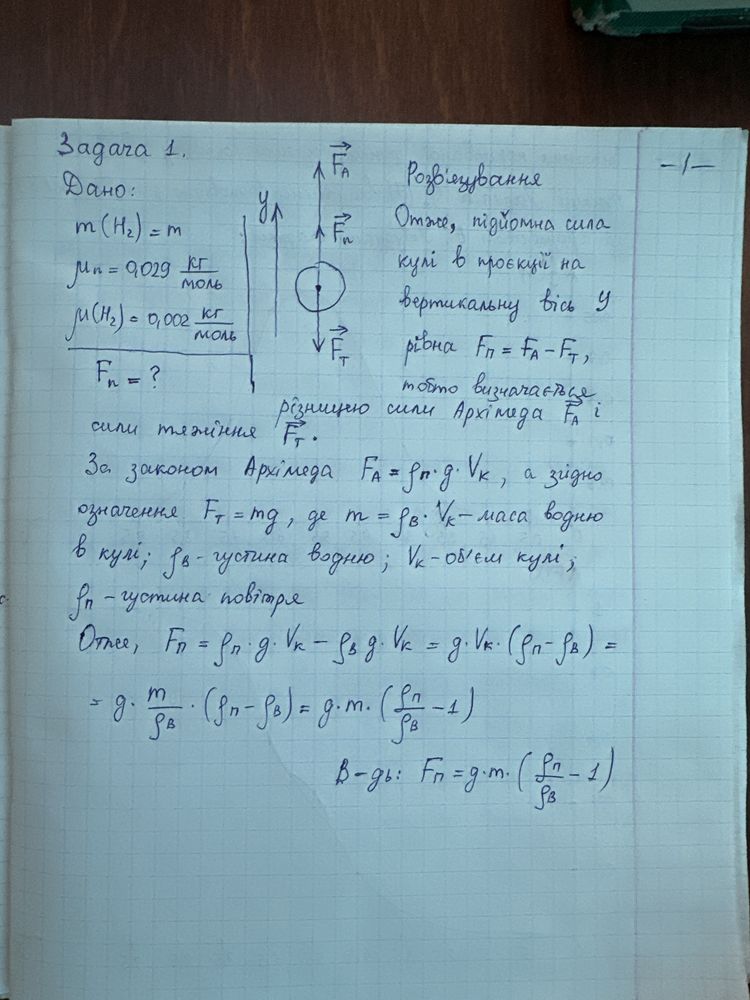 Задача 1.
Дано:
m(H₂) = m
μп = 0,029 кг/моль
μ(H₂) = 0,002 кг/моль
Fп = ?
y
F⃗A
F⃗п
F⃗т
-1-
Розв'язування
Отже, підйомна сила
кулі в проєкції на
вертикальну вісь y
рівна Fп = FA - Fт,
тобто визначається
різницею сили Архімеда F⃗A і
сили тяжіння F⃗т.
За законом Архімеда FA = ρп·g·Vк, а згідно
означення Fт = mg, де m = ρв·Vк – маса водню
в кулі; ρв – густина водню; Vк – об'єм кулі;
ρп – густина повітря
Отже, Fп = ρп·g·Vк – ρв g·Vк = g·Vк·(ρп – ρв) =
= g· m/ρв ·(ρп – ρв) = g·m·(ρп/ρв – 1)
В-дь: Fп = g·m·(ρп/ρв – 1)